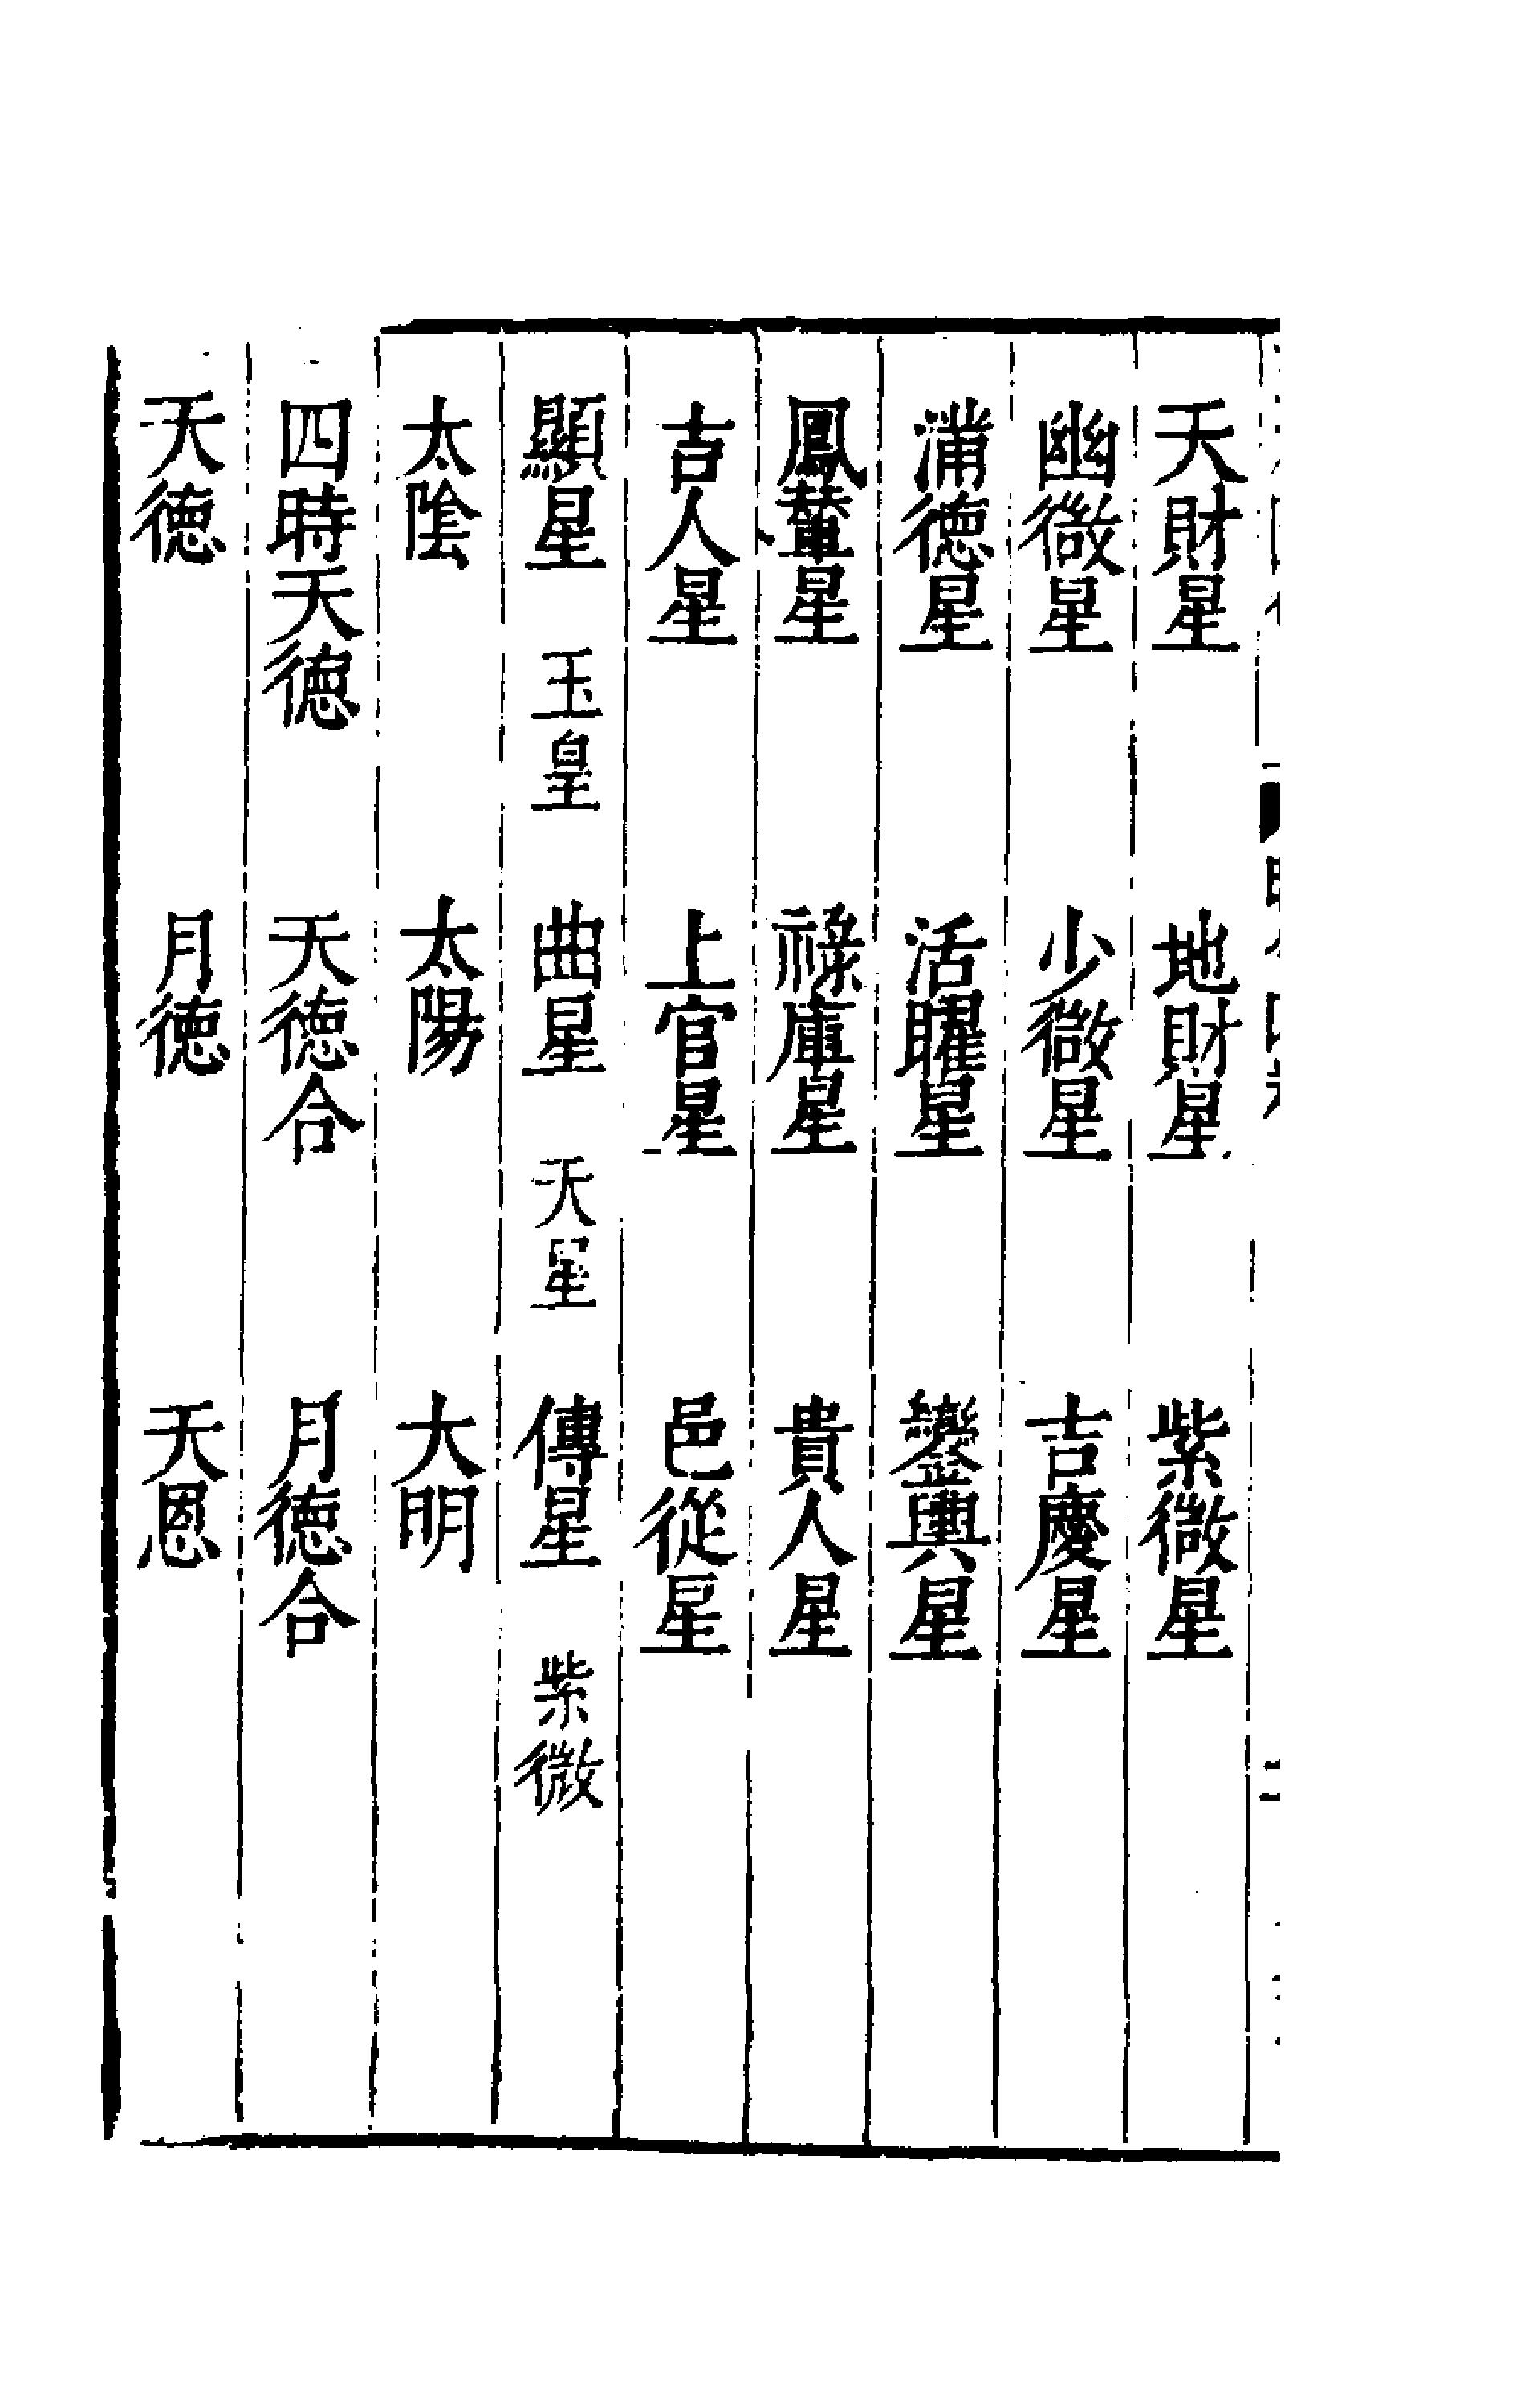 天財星　地財星　紫微星
幽微星　少微星　吉慶星
滿德星　活曜星　鑾輿星
鳳輦星　祿庫星　貴人星
吉人星　上官星　邑從星
顯星　玉皇　曲星　天星　傳星　紫微
太陰　太陽　大明
四時天德　天德合　月德合
天德　月德　天恩